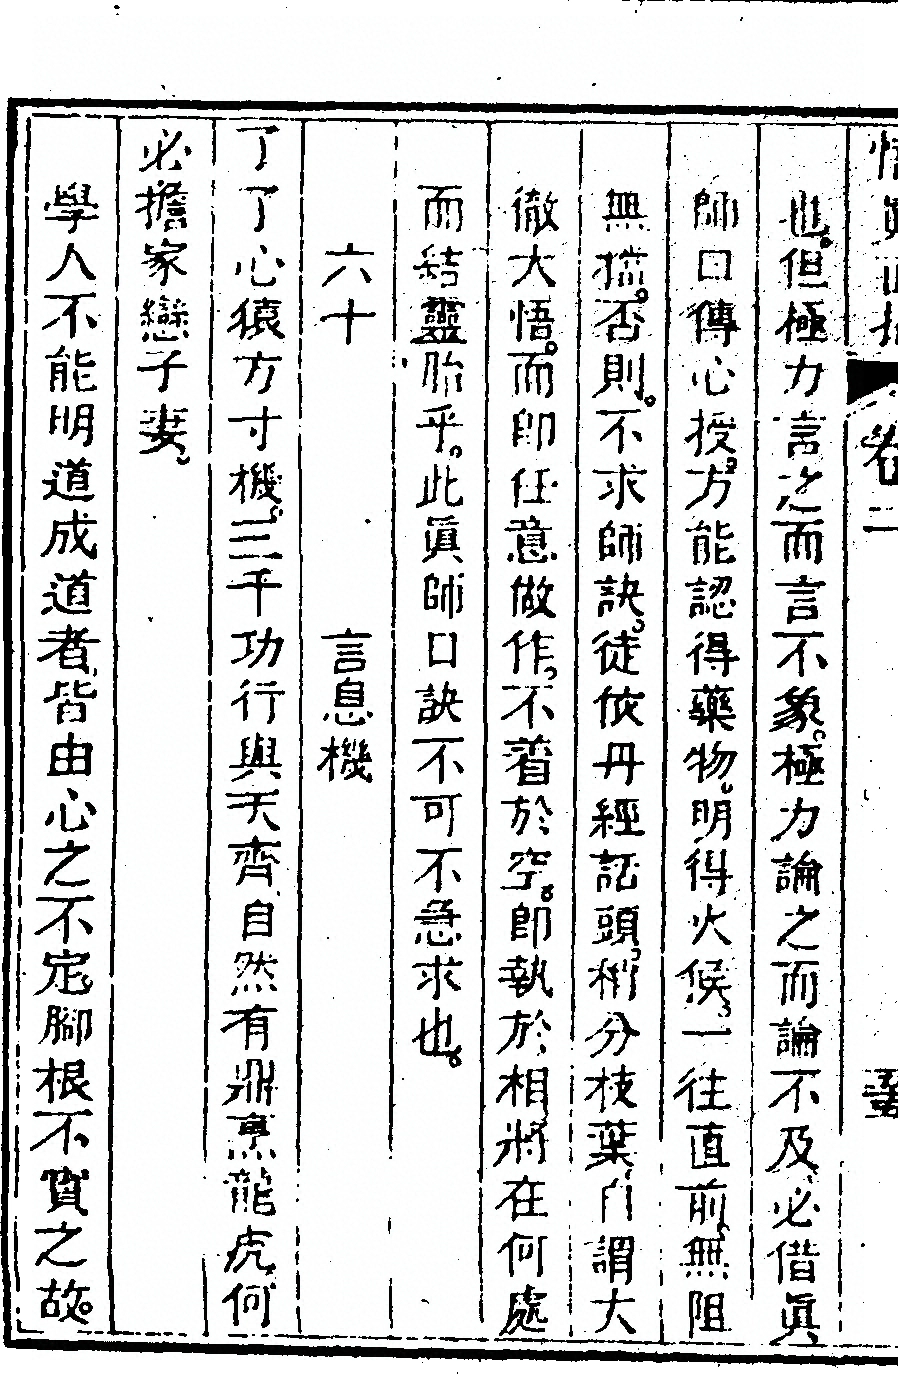 悟眞直指 卷二
也。但極力言之而言不象。極力論之而論不及、必借眞
師口傳心授。方能認得藥物。明得火候、一往直前。無阻
無擋。否則。不求師訣。徒依丹經話頭。稍分枝葉、自謂大
徹大悟。而即任意做作、不着於空。即執於相將在何處
而結靈胎乎。此眞師口訣不可不急求也。
六十 言息機
了了心猿方寸機。三千功行與天齊、自然有鼎烹龍虎、何
必擔家戀子妻。
學人不能明道成道者、皆由心之不定脚根不實之故。